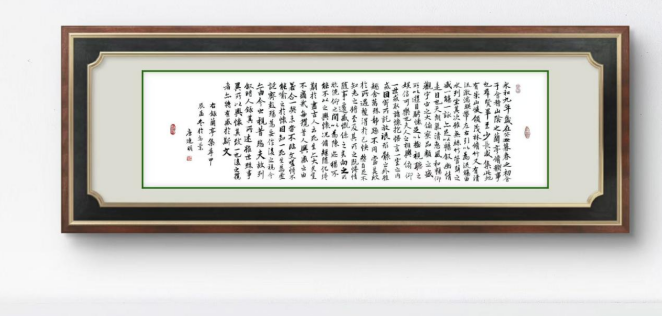 永和九年歲在癸丑暮春之初會
于會稽山陰之蘭亭脩禊事
也羣賢畢至少長咸集此地
有崇山峻領茂林脩竹又有清
流激湍暎帶左右引以為流觴曲
水列坐其次雖無絲竹管弦之
盛一觴一詠亦足以暢敘幽情
是日也天朗氣清惠風和暢仰
觀宇宙之大俯察品類之盛
所以遊目騁懷足以極視聽之
娛信可樂也夫人之相與俯仰
一世或取諸懷抱悟言一室之內
或因寄所託放浪形骸之外雖
趣舍萬殊靜躁不同當其欣
於所遇蹔得於己快然自足不
知老之將至及其所之既惓情
隨事遷感慨係之矣向之所
欣俛仰之間以為陳迹猶不
能不以之興懷況脩短隨化終
期於盡古人云死生亦大矣豈
不痛哉每攬昔人興感之由
若合一契未嘗不臨文嗟悼不
能喻之於懷固知一死生為虛
誕齊彭殤為妄作後之視今
亦由今之視昔悲夫故列
敘時人錄其所述雖世殊事
異所以興懷其致一也後之攬
者亦將有感於斯文
右錄蘭亭集序